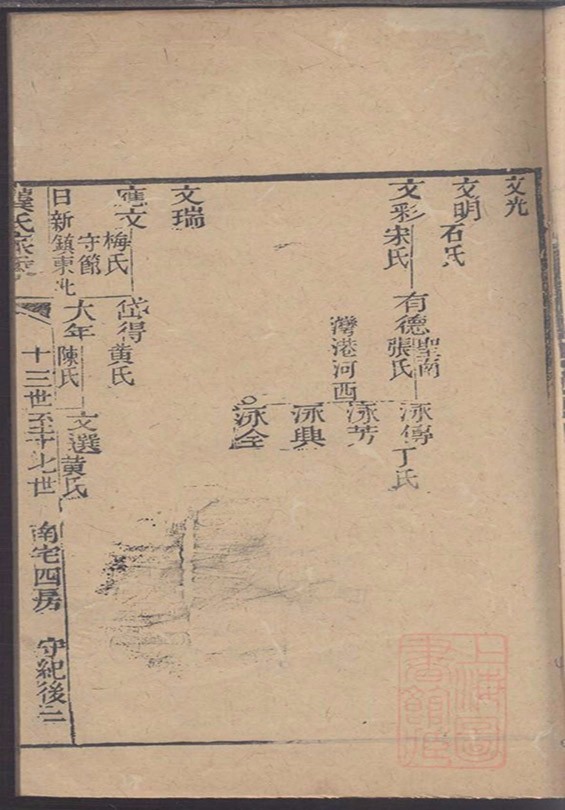 文光
文明 石氏
文彩 宋氏 有德 聖南 張氏 泳傳 丁氏
灣港河西
泳芳
泳興
泳全
文瑞
應文 梅氏 岱得 黃氏
守館
日新鎮東北 大年 陳氏 文選 黃氏
氏
十三世至十七世 南宅四房 守紀後二
上海圖書館庄